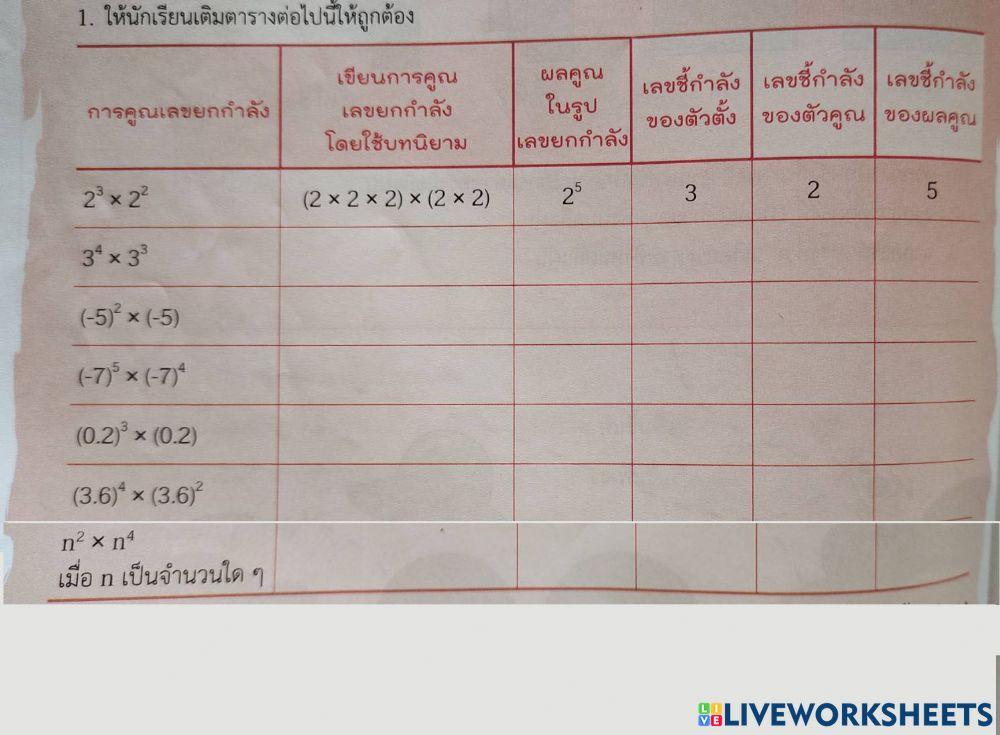 1. ให้นักเรียนเติมตารางต่อไปนี้ให้ถูกต้อง
การคูณเลขยกกำลัง
เขียนการคูณ
เลขยกกำลัง
โดยใช้บทนิยาม
ผลคูณ
ในรูป
เลขยกกำลัง
เลขชี้กำลัง
ของตัวตั้ง
เลขชี้กำลัง
ของตัวคูณ
เลขชี้กำลัง
ของผลคูณ
2³ × 2²
(2 × 2 × 2) × (2 × 2)
2⁵
3
2
5
3⁴ × 3³
(-5)² × (-5)
(-7)⁵ × (-7)⁴
(0.2)³ × (0.2)
(3.6)⁴ × (3.6)²
n² × n⁴
เมื่อ n เป็นจำนวนใด ๆ
LIVE LIVEWORKSHEETS